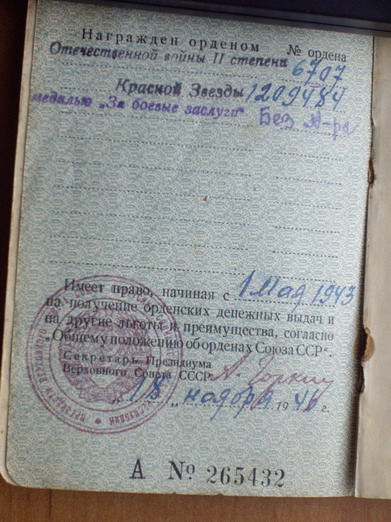 Награжден орденом № ордена
Отечественной войны II степени 6707
Красной Звезды 1209484
медалью „За боевые заслуги" Без N-ра
Имеет право, начиная с 1 мая 1943
на получение орденских денежных выдач и
на другие льготы и преимущества, согласно
„Общему положению об орденах Союза ССР".
Секретарь Президиума
Верховного Совета СССР А. Горкин
"18" ноября 1946 г.
А № 265432